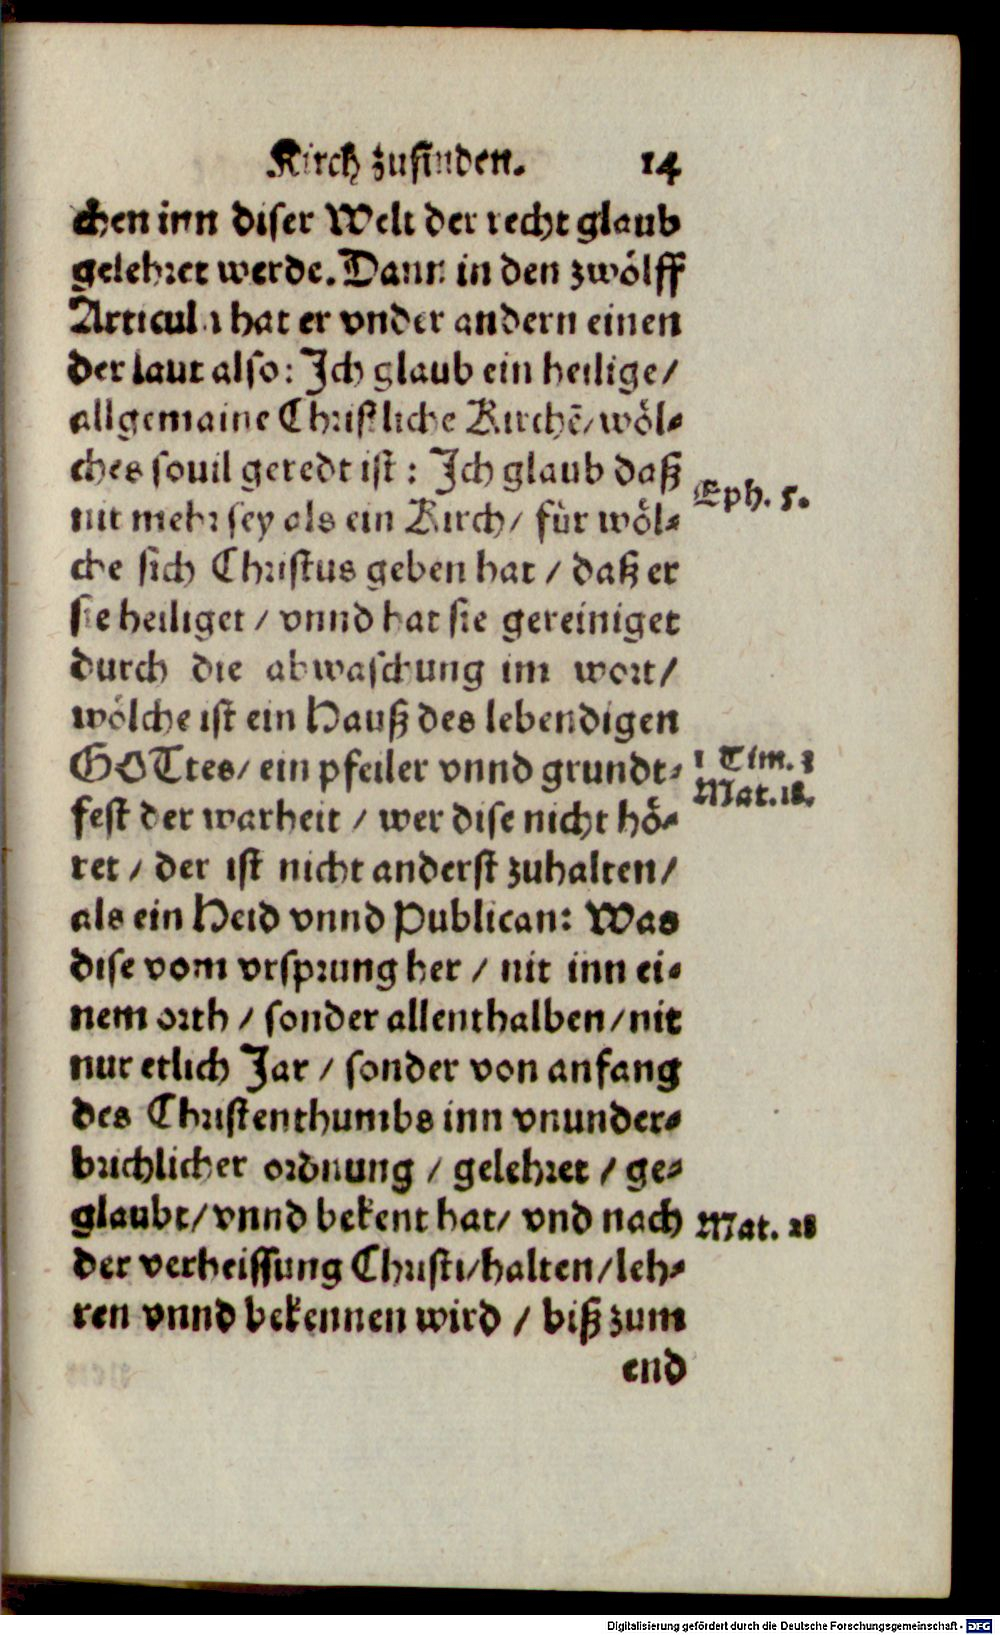 Kirch zufinden. 14
chen inn diser Welt der recht glaub
gelehret werde. Dann in den zwölff
Articuln hat er vnder andern einen
der laut also: Jch glaub ein heilige/
allgemaine Christliche Kirchē/ wöl-
ches souil geredt ist: Jch glaub daß
nit mehr sey als ein Kirch/ für wöl-
che sich Christus geben hat / daß er
sie heiliget / vnnd hat sie gereiniget
durch die abwaschung im wort/
wölche ist ein Hauß des lebendigen
GOTtes/ ein pfeiler vnnd grundt-
fest der warheit / wer dise nicht hö-
ret / der ist nicht anderst zuhalten/
als ein Heid vnnd Publican: Was
dise vom vrsprung her / nit inn ei-
nem orth / sonder allenthalben/ nit
nur etlich Jar / sonder von anfang
des Christenthumbs inn vnunder-
brichlicher ordnung / gelehret / ge-
glaubt/ vnnd bekent hat/ vnd nach
der verheissung Christi/ halten/ leh-
ren vnnd bekennen wird / biß zum
end
Eph. 5.
1 Tim. 3
Mat. 18.
Mat. 28
Digitalisierung gefördert durch die Deutsche Forschungsgemeinschaft - DFG